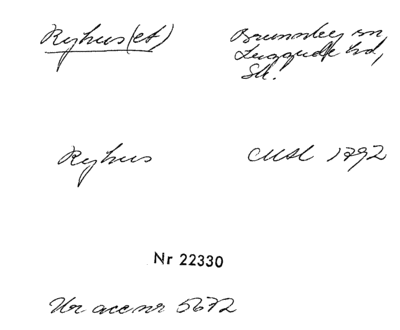 Ryhus(et) Brunnsby sn,
Luggude hd,
Sk.
Ryhus CUSL 1792
Nr 22330
Ur acc nr 5672